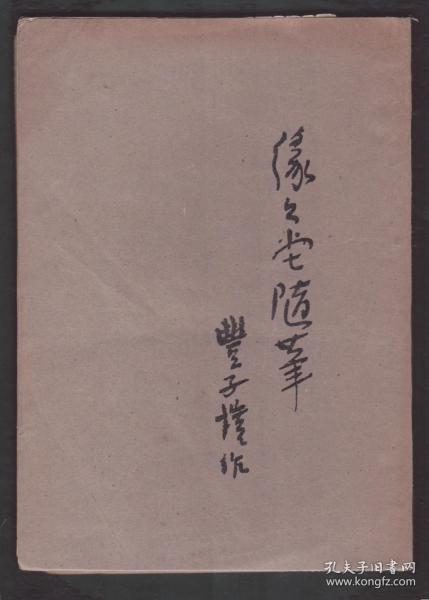 缘缘堂随笔
豐子愷作
孔夫子旧书网
www.kongfz.com